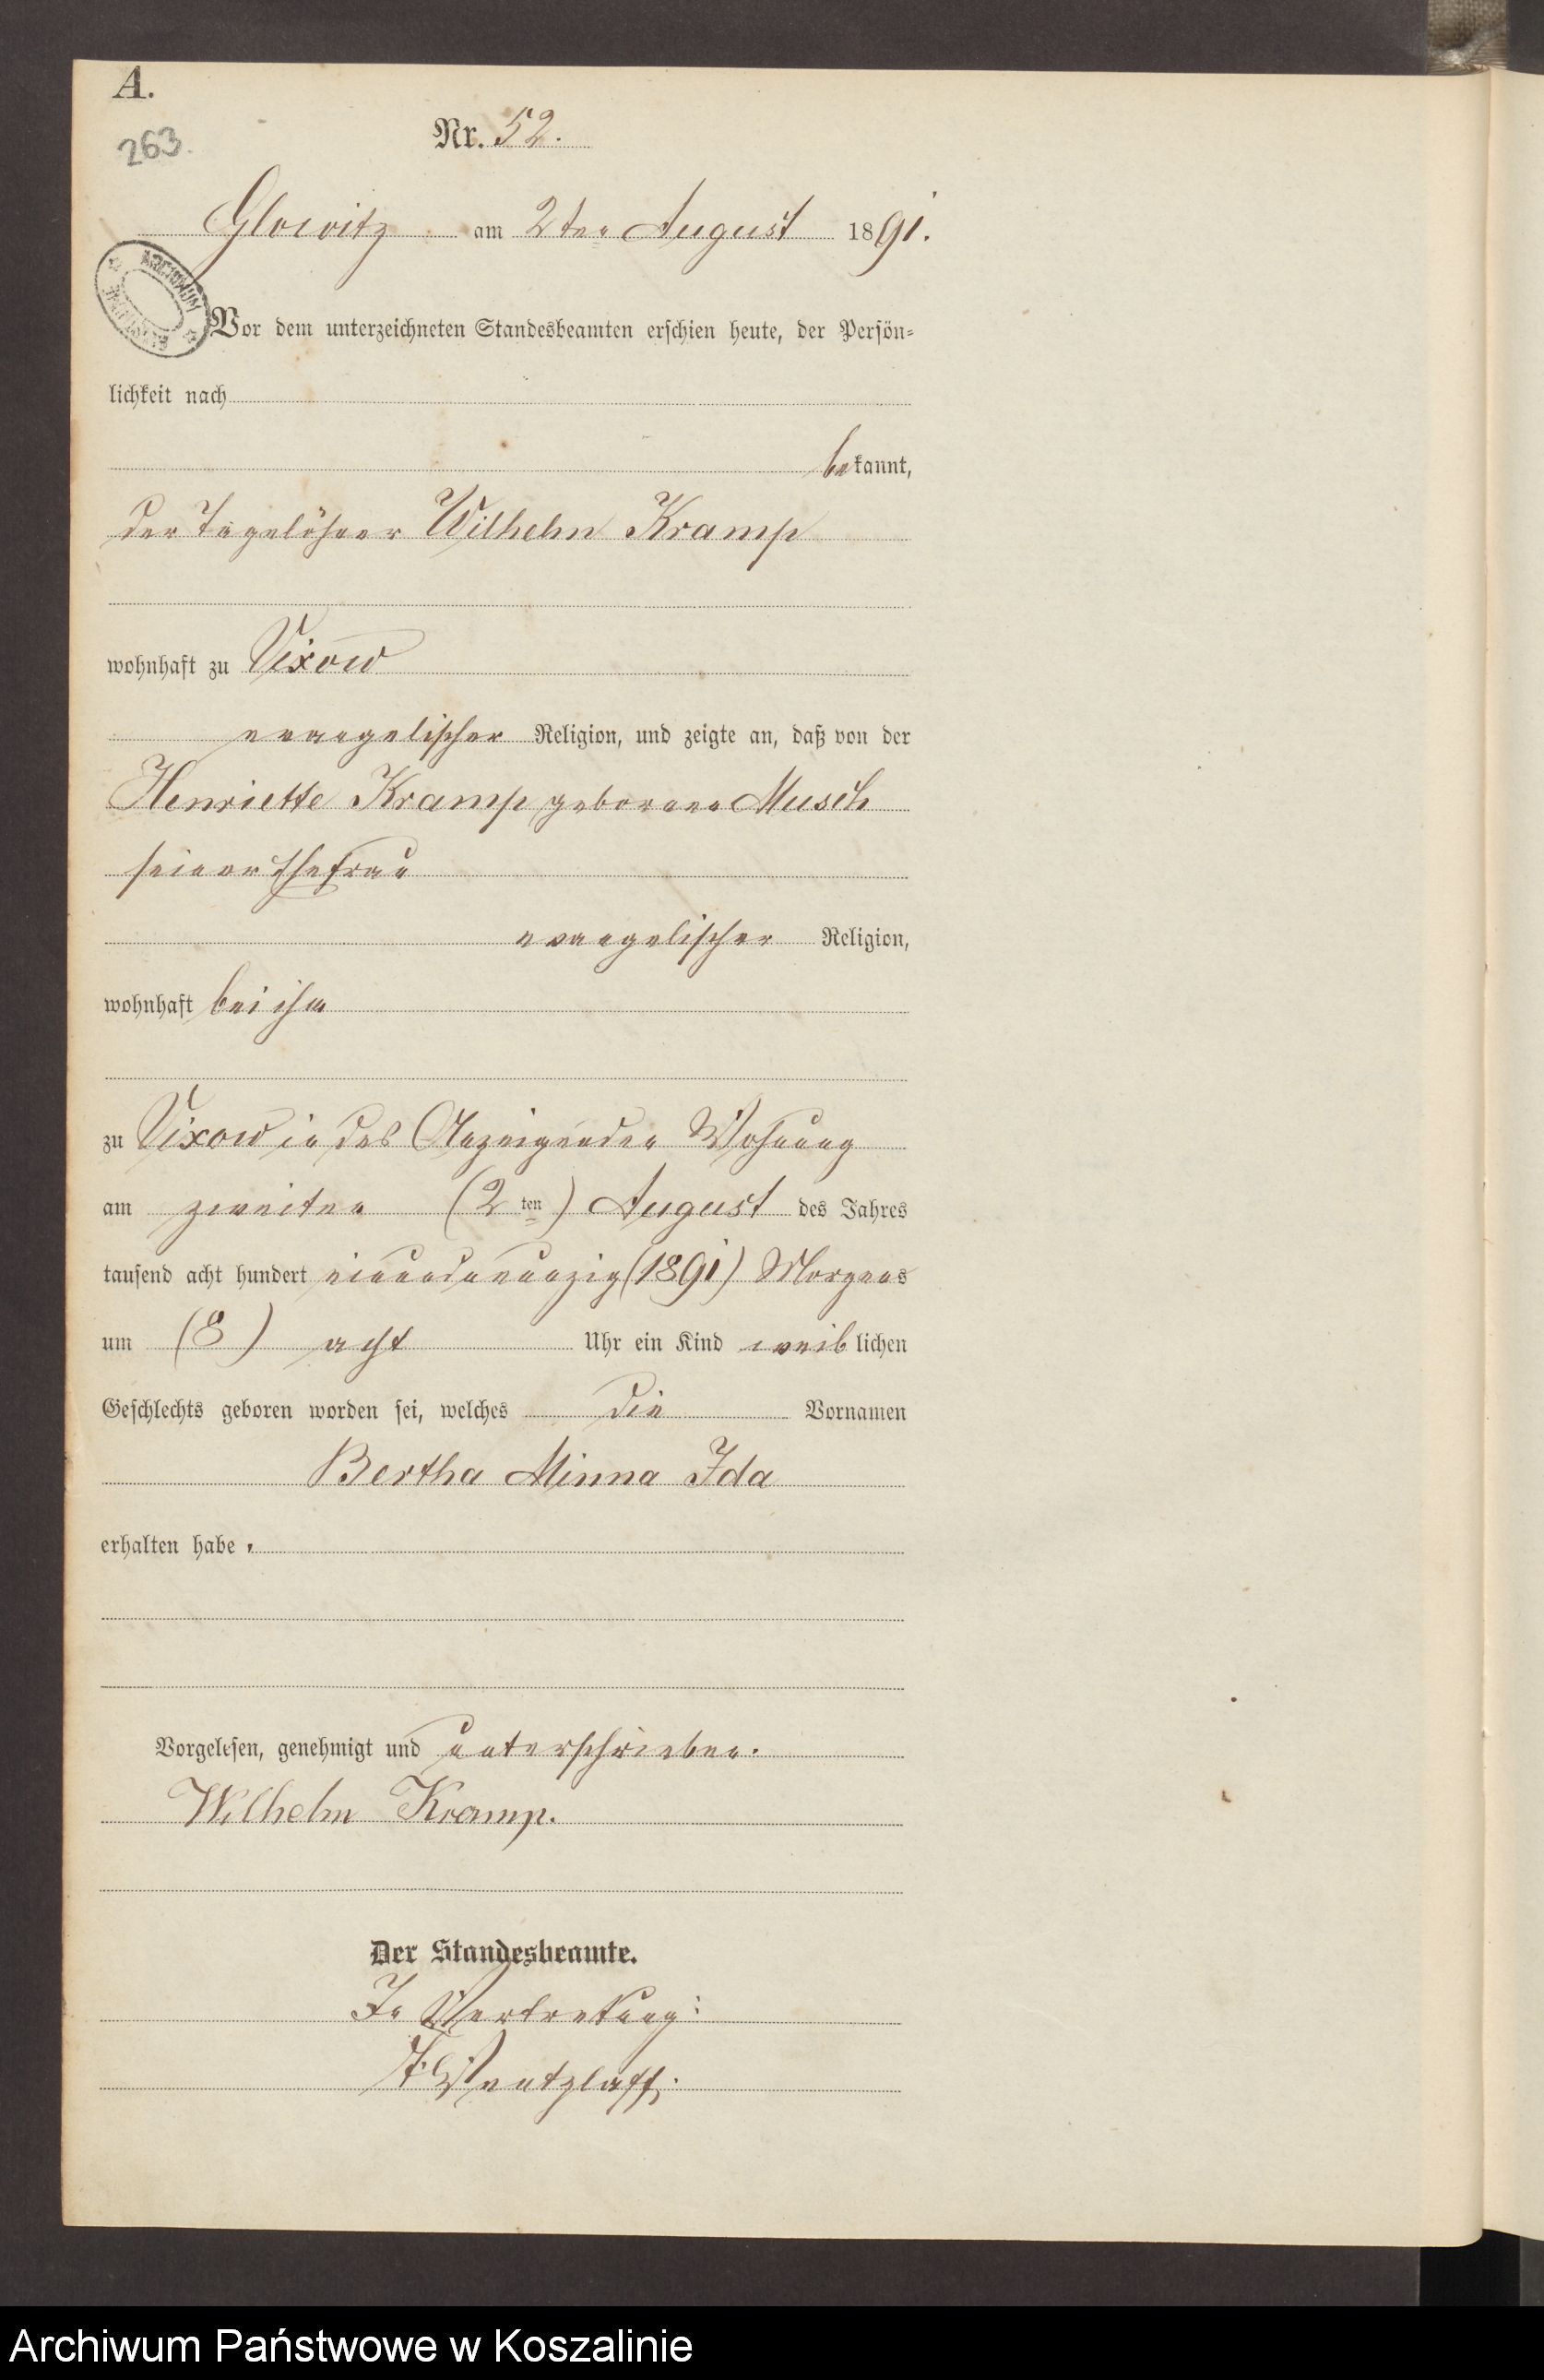 A.
263.
Nr. 52.
Glowitz am 2ten August 1891.
ARCHIWUM
Vor dem unterzeichneten Standesbeamten erschien heute, der Persön=
lichkeit nach
bekannt,
der Tagelöhner Wilhelm Kramp
wohnhaft zu Vixow
evangelischer Religion, und zeigte an, daß von der
Henriette Kramp geborene Musch
seiner Ehefrau
evangelischer Religion,
wohnhaft bei ihm
zu Vixow in des Anzeigenden Wohnung
am zweiten (2ten) August des Jahres
tausend acht hundert einundneunzig (1891) Morgens
um (8) acht Uhr ein Kind weiblichen
Geschlechts geboren worden sei, welches die Vornamen
Bertha Minna Ida
erhalten habe.
Vorgelesen, genehmigt und unterschrieben.
Wilhelm Kramp.
Der Standesbeamte.
In Vertretung:
Wentzlaff.
Archiwum Państwowe w Koszalinie